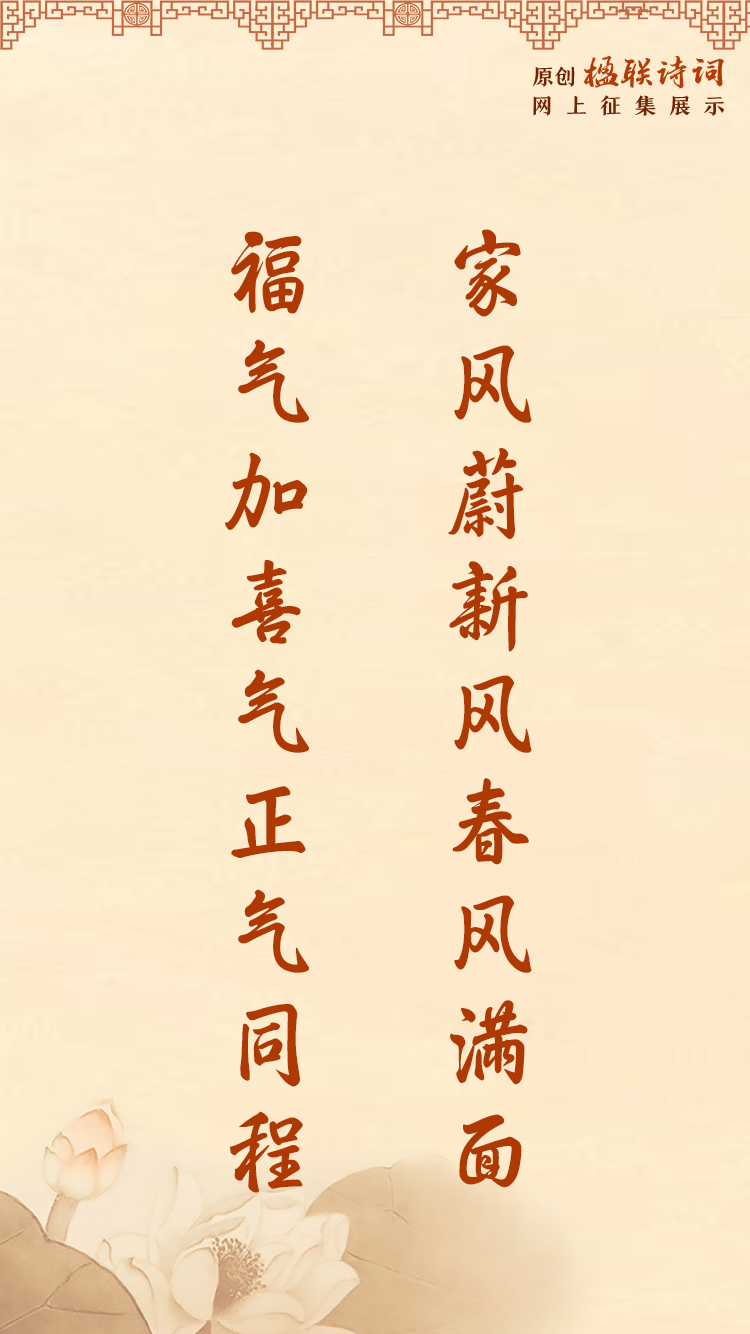 原创 楹联诗词
网上征集展示
家风蔚新风春风满面
福气加喜气正气同程